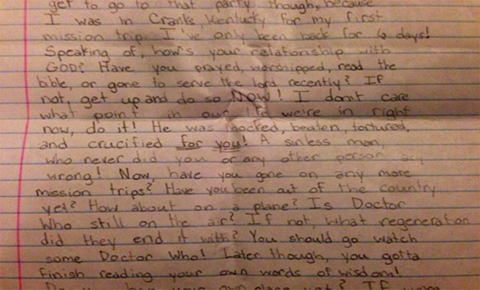 get to go to that party though, because
I was in Cranks Kentucky for my first
mission trip. I've only been back for 6 days!
Speaking of, how's your relationship with
GOD? Have you prayed, worshipped, read the
bible, or gone to serve the lord recently? If
not, get up and do so NOW! I don't care
what point in our life we're in right
now, do it! He was mocked, beaten, tortured,
and crucified for you! A sinless man,
who never did you or any other person any
wrong! Now, have you gone on any more
mission trips? Have you been out of the country
yet? How about on a plane? Is Doctor
Who still on the air? If not, what regeneration
did they end it with? You should go watch
some Doctor Who! Later though, you gotta
finish reading your own words of wisdom!
Do you have your own place yet? If